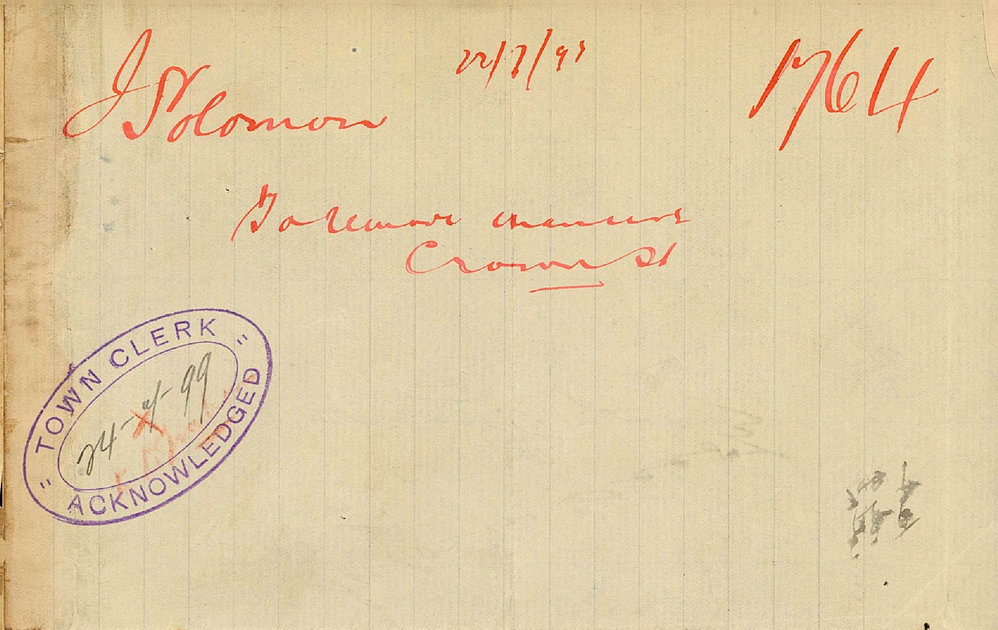 J Solomon
22/7/99
1764
To remove manure
Crown St
" TOWN CLERK "
24-7-99
ACKNOWLEDGED